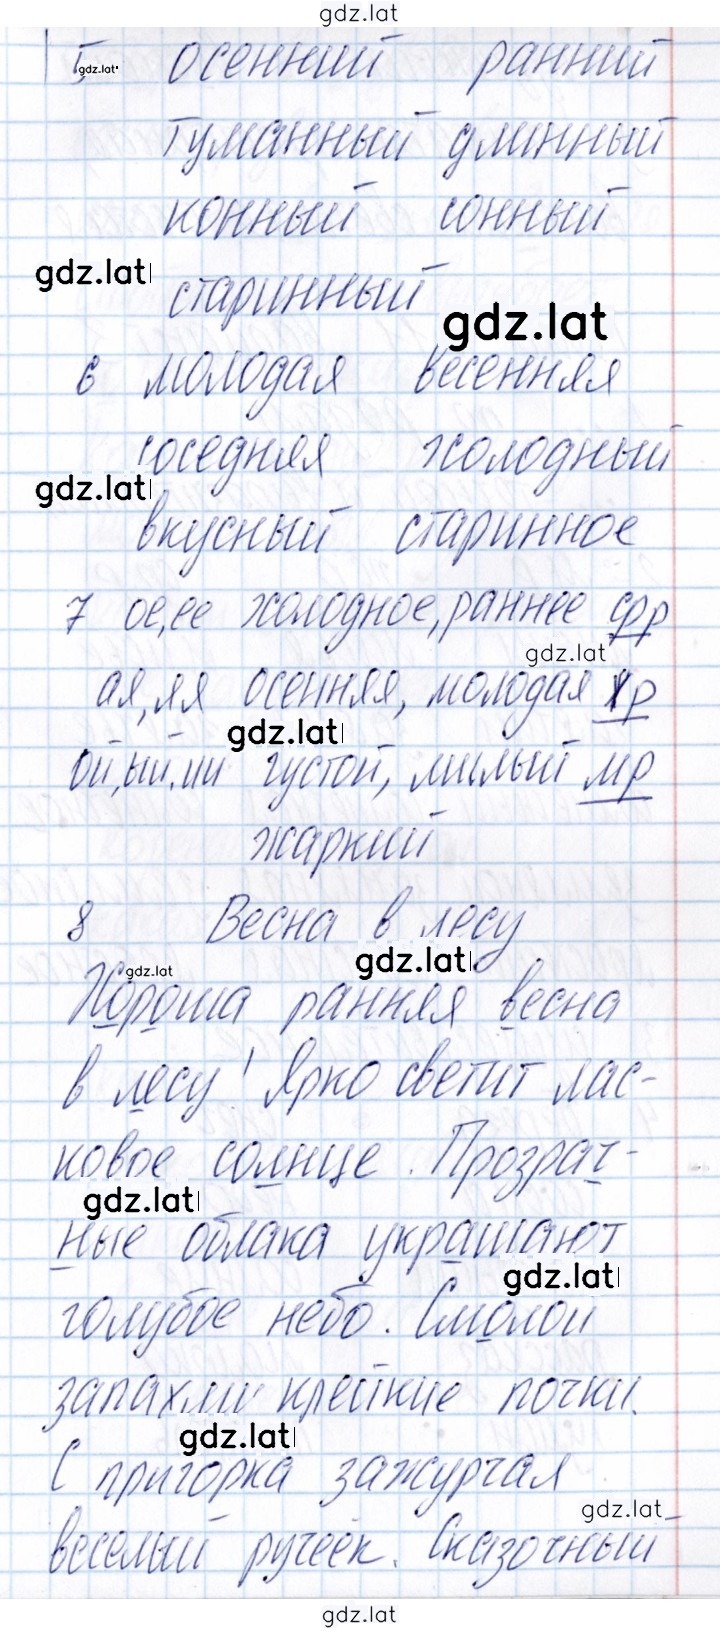 gdz.lat
5 осенний ранний
gdz.lat
туманный длинный
конный сонный
gdz.lat
старинный
gdz.lat
6 молодая весенняя
соседняя холодный
gdz.lat
вкусный старинное
7 ое,ее холодное,раннее ср р
gdz.lat
ая,яя осенняя, молодая жр
gdz.lat
ой,ый,ий густой, милый мр
жаркий
8 Весна в лесу
gdz.lat
gdz.lat
Хороша ранняя весна
в лесу! Ярко светит лас-
ковое солнце. Прозрач-
gdz.lat
ные облака украшают
gdz.lat
голубое небо. Смолой
запахли клейкие почки.
gdz.lat
С пригорка зажурчал
gdz.lat
веселый ручеек. Сказочный
gdz.lat